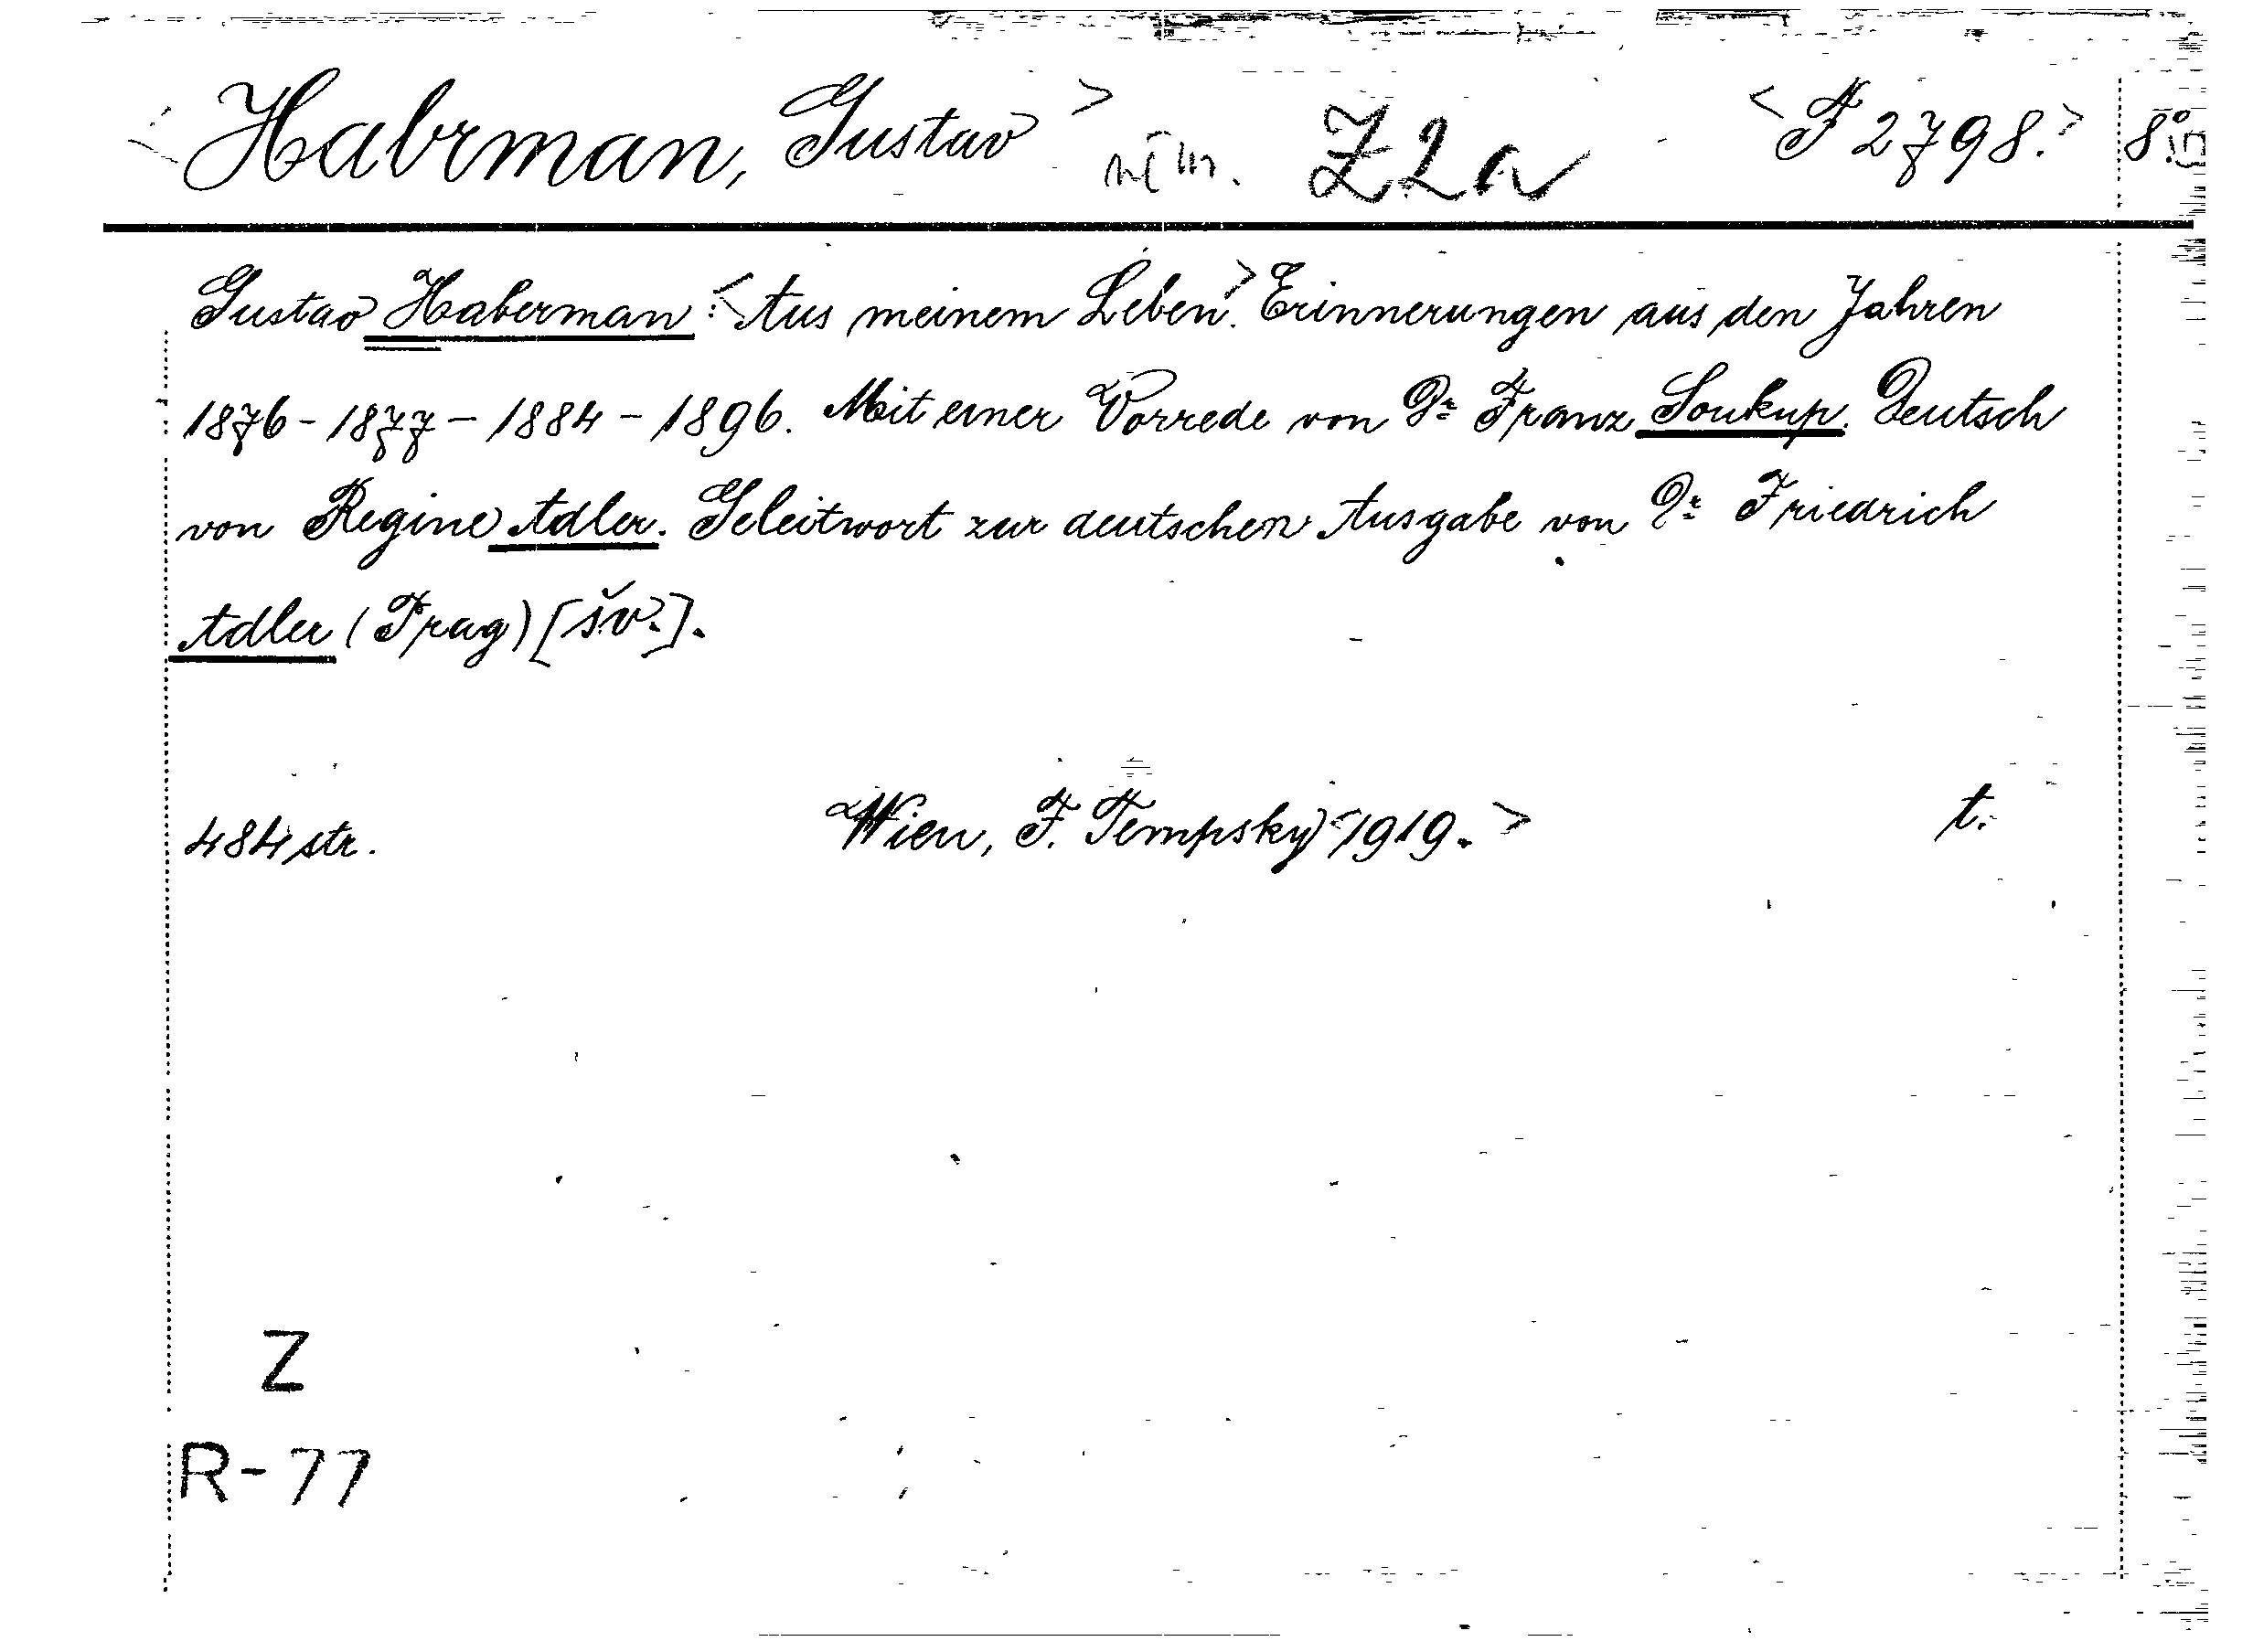 < Habrman, Gustav > Z2a < F 2798. > 8°
Gustav Haberman: <Aus meinem Leben.> Erinnerungen aus den Jahren
1876 - 1877 - 1884 - 1896. Mit einer Vorrede von Dr Franz Soukup. Deutsch
von Regine Adler. Geleitwort zur deutschen Ausgabe von Dr Friedrich
Adler (Prag) [šv.].
484 str. Wien, F. Tempsky <1919. > t.
Z
R-77